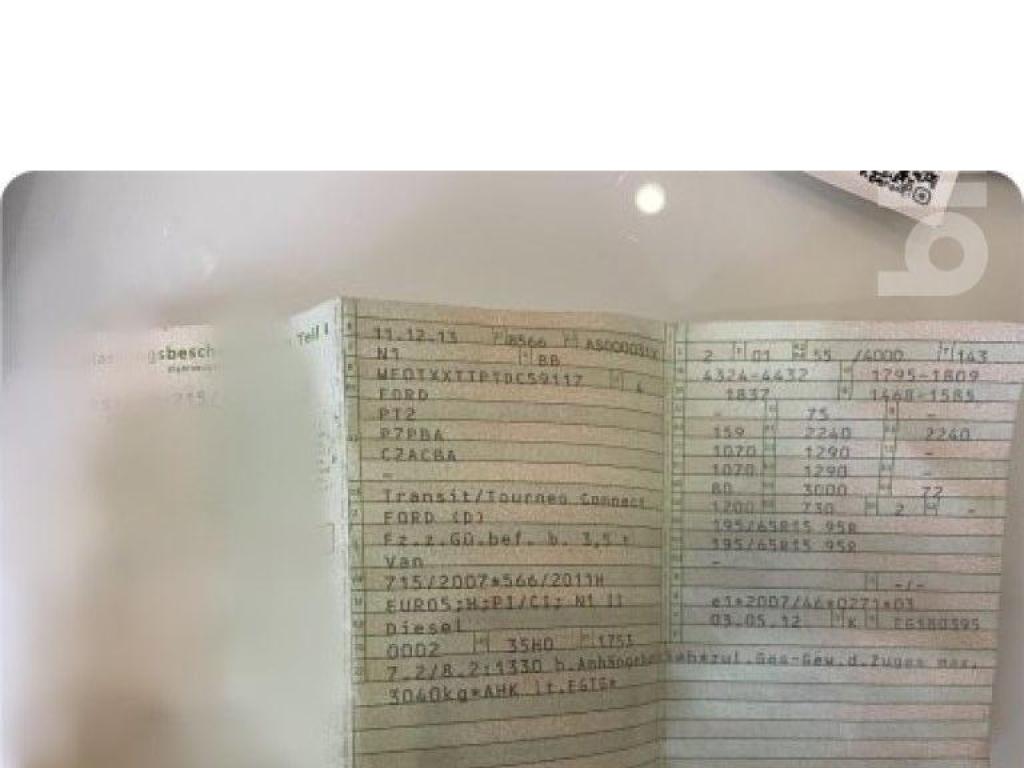 Teil I
11.12.13 8566
N1 BB
4
FORD
PT2
P7PBA
C2ACBA
-
Transit/Tourneo Connect
FORD (D)
Fz.z.Gü.bef. b. 3,5 t
Van
715/2007*566/2011H
EURO5;H;PI/CI; N1 II
Diesel
0002 35H0 1753
7.2/8.2:1330 b.Anhängebetriebzul.Ges-Gew.d.Zuges max.
3040kg*AHK lt.EGTG*
2 01 55 /4000 143
4324-4432 1795-1809
1837 1468-1585
- 75 -
159 2240 2240
1070 1290 -
1070 1290 -
80 3000 72
1200 730 2 -
195/65R15 95R
195/65R15 95R
-
-/-
e1*2007/46*0271*03
03.05.12 K EG180395
b